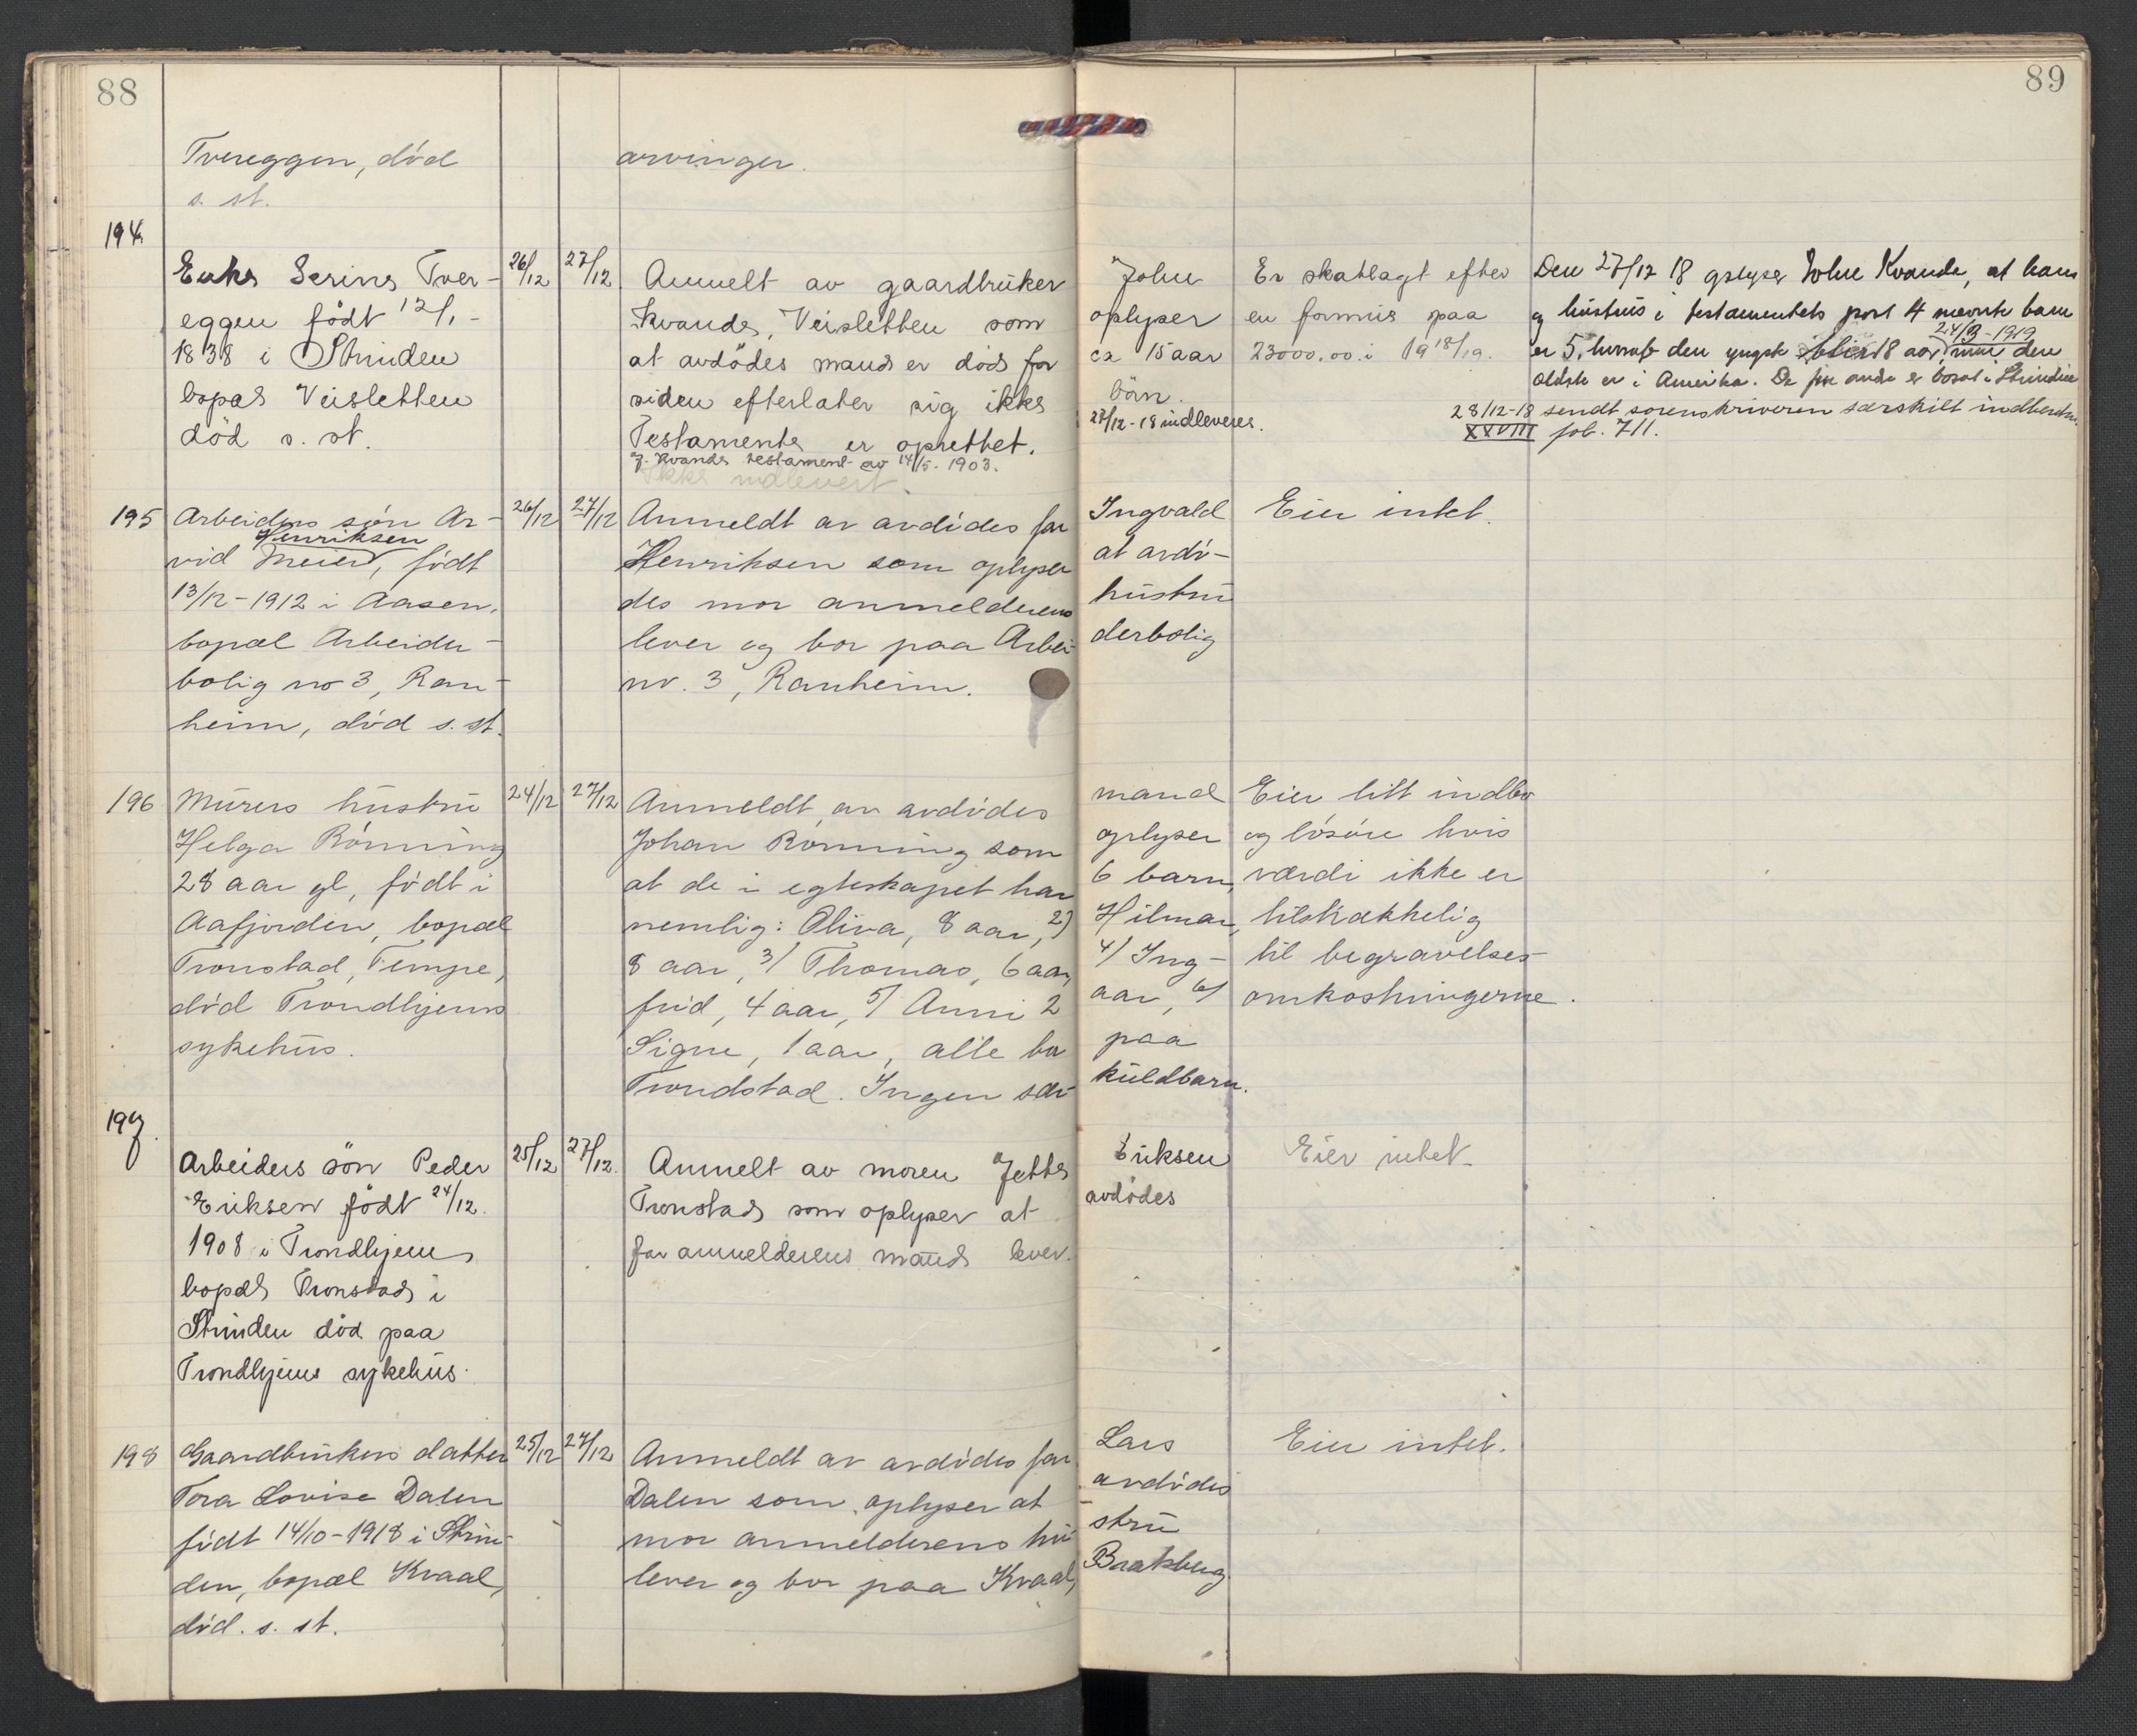 88
89
Tvereggen, död
s. st.
arvinger.
194.
Enke Serine Tver-
eggen födt 12/1-
1838 i Strinden
bopæl Veisletten
död s. st.
26/12
27/12
Anmelt av gaardbruker John
Kvande, Veisletten som oplyser
at avdödes mand er död for ca 15 aar
siden efterlater sig ikke börn.
Testamente er oprettet. 27/12-18 indleveres.
J. Kvande testament av 14/5-1903.
Ikke indlevert.
Er skatlagt efter
en formue paa
23000.00 i 1918/19.
Den 27/12 18 oplyser John Kvande, at ham
og hustrus i testamentets post 4 nævnte barn
er 5, hvorav den yngste blir 18 aar 24/3-1919 den
ældste er i Amerika. De fire andre er bosat i Strinden
28/12-18 sendt sorenskriveren særskilt indberetn.
XXVIII fol. 711.
195
Arbeiders sön Ar-
Henriksen
vid Meier, födt
13/12-1912 i Aasen,
bopæl Arbeider-
bolig no 3, Ran-
heim, död s. st.
26/12
27/12
Anmeldt av avdödes far Ingvald
Henriksen som oplyser at avdö-
des mor anmelderens hustru
lever og bor paa Arbeiderbolig
nr. 3, Ranheim.
Eier intet.
196
Murers hustru
Helga Rönning
28 aar gl, födt i
Aafjorden, bopæl
Tronstad, Tempe,
död Trondhjems
sykehus.
24/12
27/12
Anmeldt av avdödes mand
Johan Rönning som oplyser
at de i egteskapet har 6 barn,
nemlig: Oliva, 8 aar, 2) Hilmar,
8 aar, 3) Thomas, 6 aar, 4) Ing-
frid, 4 aar, 5) Anni 2 aar, 6)
Signe, 1 aar, alle bor paa
Trondstad. Ingen særkuldbarn.
Eier litt indbo
og lösöre hvis
værdi ikke er
tilstrækkelig
til begravelses-
omkostningerne.
197.
Arbeiders sön Peder
Eriksen födt 24/12.
1908 i Trondhjem
bopæl Tronstad i
Strinden död paa
Trondhjems sykehus.
25/12
27/12.
Anmelt av moren Jette Eriksen
Tronstad som oplyser at avdödes
far anmelderens mand lever.
Eier intet-
198
Gaardbrukers datter
Tora Lovise Dalen
födt 14/10-1918 i Strin-
den, bopæl Kvaal,
död. s. st.
25/12
27/12
Anmeldt av avdödes far Lars
Dalen som oplyser at avdödes
mor anmelderens hustru
lever og bor paa Kvaal, Bratsberg
Eier intet.